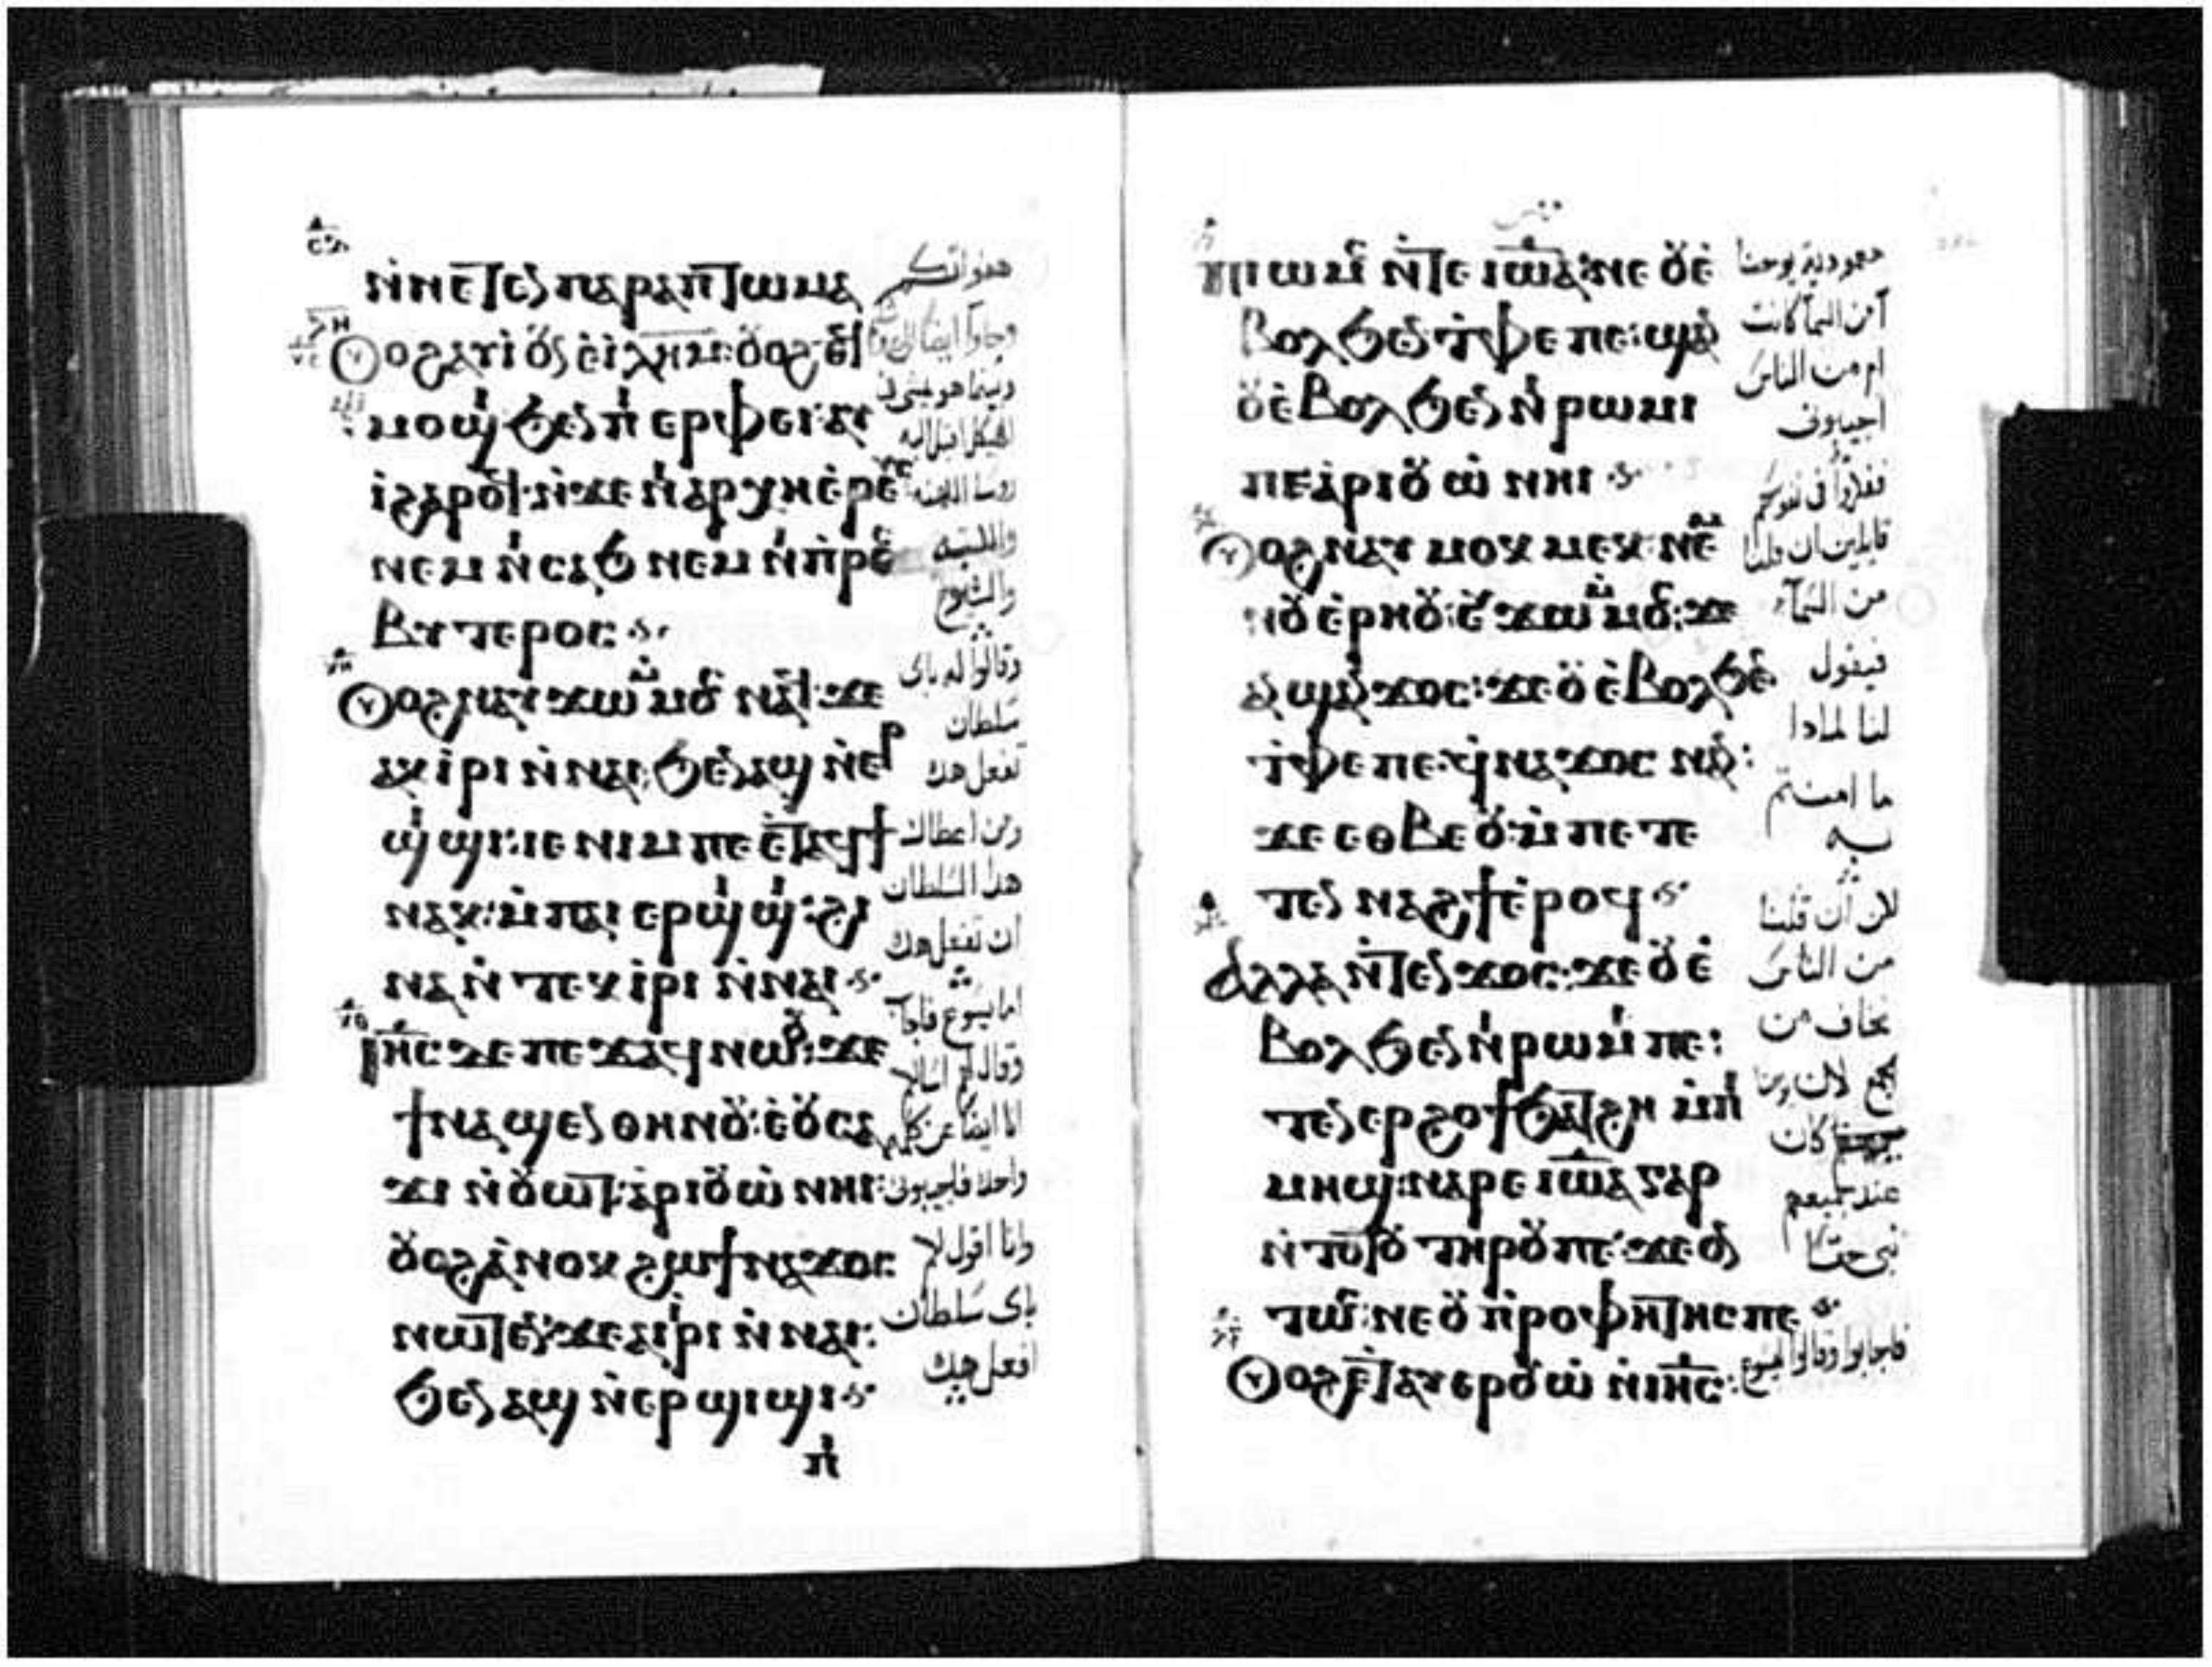 ⲛ̀ⲛⲉⲧⲉⲛⲡⲁⲣⲁⲡⲧⲱⲙⲁ
ⲟⲩⲟϩ ⲁⲩⲓ̀ ⲟⲛ ⲉ̀ⲓⲗⲏⲙ: ⲟⲩⲟϩ ⲉϥ
ⲙⲟϣⲓ ϧⲉⲛ ⲡⲓⲉⲣⲫⲉⲓ: ⲁⲩ
ⲓ̀ ϩⲁⲣⲟϥ: ⲛ̀ϫⲉ ⲛⲓⲁⲣⲭⲏⲉ̀ⲣⲉⲩⲥ
ⲛⲉⲙ ⲛⲓⲥⲁϧ ⲛⲉⲙ ⲛⲓⲡ̀ⲣⲉⲥ
ⲃⲩⲧⲉⲣⲟⲥ
ⲟⲩⲟϩ ⲛⲁⲩϫⲱ ⲙ̀ⲙⲟⲥ ⲛⲁϥ: ϫⲉ
ⲁⲕⲓ̀ⲣⲓ ⲛ̀ⲛⲁⲓ: ϧⲉⲛ ⲁϣ ⲛ̀ⲉⲣ
ϣⲓϣⲓ: ⲓⲉ ⲛⲓⲙ ⲡⲉ ⲉ̀ⲧⲁϥϯ
ⲛⲁⲕ: ⲙ̀ⲡⲁⲓ ⲉⲣϣⲓϣⲓ: ϩⲓ
ⲛⲁ ⲛ̀ⲧⲉⲕⲓ̀ⲣⲓ ⲛ̀ⲛⲁⲓ
ⲓⲏⲥ ⲇⲉ ⲡⲉϫⲁϥ ⲛⲱⲟⲩ: ϫⲉ
ϯⲛⲁϣⲉⲛ ⲑⲏⲛⲟⲩ: ⲉ̀ⲟⲩⲥⲁ
ϫⲓ ⲛ̀ⲟⲩⲱⲧ: ⲁ̀ⲣⲓⲟⲩⲱ̀ ⲛⲏⲓ:
ⲟⲩⲟϩ ⲁ̀ⲛⲟⲕ ϩⲱ ϯⲛⲁϫⲟⲥ
ⲛⲱⲧⲉⲛ: ϫⲉ ⲁⲓⲓ̀ⲣⲓ ⲛ̀ⲛⲁⲓ:
ϧⲉⲛ ⲁϣ ⲛ̀ⲉⲣϣⲓϣⲓ
ⲡⲓ
هفواتكم
وجاوا ايضا الى
وبينما هو يمشى فى
الهيكل اقبل اليه
روسا الكهنه
والكتبه
والشيوخ
وقالوا له باى
سلطان
تفعل هدا
ومن اعطاك
هدا السلطان
ان تفعل هدا
اما يسوع فاجاب
وقال لهم اسالكم
انا ايضا عن كلمه
واحده فاجيبونى
وانا اقول لكم
باى سلطان
افعل هدا
ⲡⲓⲱⲙⲥ ⲛ̀ⲧⲉ ⲓⲱⲁⲛⲛⲏⲥ ⲟⲩⲉ̀
ⲃⲟⲗ ϧⲉⲛ ⲧ̀ⲫⲉ ⲡⲉ: ϣⲁⲛ
ⲟⲩⲉ̀ⲃⲟⲗ ϧⲉⲛ ⲛⲓⲣⲱⲙⲓ
ⲡⲉ ⲁ̀ⲣⲓⲟⲩⲱ̀ ⲛⲏⲓ
ⲟⲩⲟϩ ⲛⲁⲩⲙⲟⲕⲙⲉⲕ ⲛⲉⲙ
ⲛⲟⲩⲉ̀ⲣⲏⲟⲩ: ⲉⲩϫⲱ ⲙ̀ⲙⲟⲥ: ϫⲉ
ⲁⲛϣⲁⲛϫⲟⲥ: ϫⲉ ⲟⲩⲉ̀ⲃⲟⲗ ϧⲉⲛ
ⲧ̀ⲫⲉ ⲡⲉ: ϥ̀ⲛⲁϫⲟⲥ ⲛⲁⲛ:
ϫⲉ ⲉⲑⲃⲉⲟⲩ: ⲙ̀ⲡⲉⲧⲉ
ⲧⲉⲛ ⲛⲁϩϯ ⲉ̀ⲣⲟϥ
ⲁⲗⲗⲁ ⲛ̀ⲧⲉⲛϫⲟⲥ: ϫⲉ ⲟⲩⲉ̀
ⲃⲟⲗ ϧⲉⲛ ⲛⲓⲣⲱⲙⲓ ⲡⲉ:
ⲧⲉⲛⲉⲣϩⲟϯ ϧⲁⲧϩⲏ ⲙ̀ⲡⲓ
ⲙⲏϣ: ⲛⲁⲣⲉ ⲓⲱⲁ ⲅⲁⲣ
ⲛ̀ⲧⲟⲧⲟⲩ ⲧⲏⲣⲟⲩ ⲡⲉ: ϫⲉ ⲟⲛ
ⲧⲱⲥ: ⲛⲉ ⲟⲩⲡ̀ⲣⲟⲫⲏⲧⲏⲥ ⲡⲉ
ⲟⲩⲟϩ ⲉ̀ⲧⲁⲩⲉⲣⲟⲩⲱ̀ ⲛ̀ⲓⲏⲥ:
معمودية يوحنا
امن السما كانت
ام من الناس
اجيبونى
ففكروا فى نفوسهم
قايلين ان قلنا
من السما
فيقول
لنا لمادا
ما امنتم
به
لان ان قلنا
من الناس
نخاف من
الجمع لان يوحنا
كان
عند جميعهم
نبى حقا
فاجابوا وقالوا ليسوع